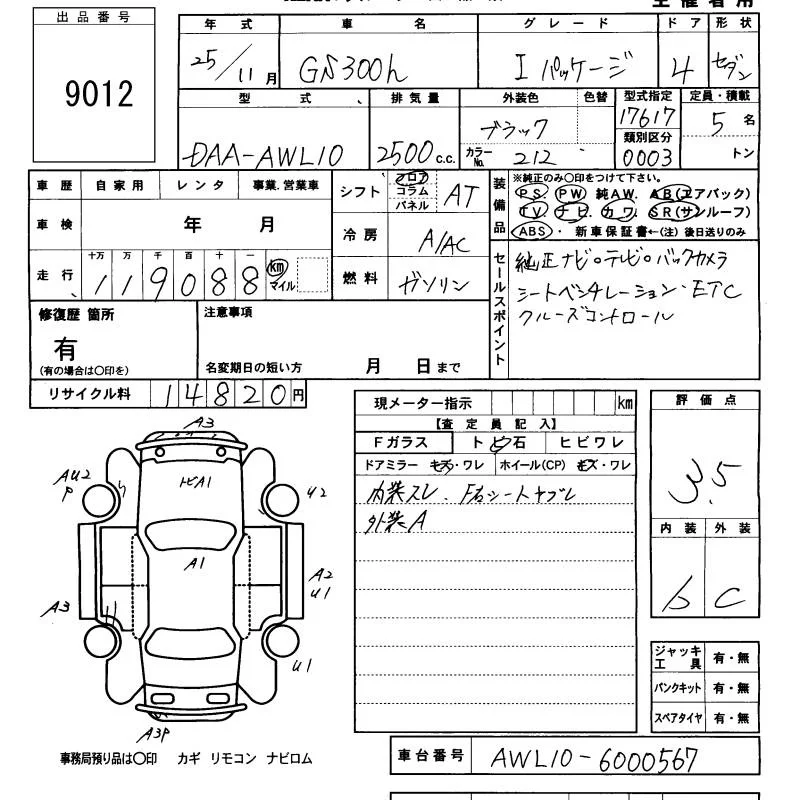 出品番号
9012
年式 車名 グレード ドア 形状
25/11月 GS300h I パッケージ 4 セダン
型式 排気量 外装色 色替 型式指定 定員・積載
DAA-AWL10 2500c.c. ブラック カラーNo. 212 17617 5名
類別区分
0003 トン
車歴 自家用 レンタ 事業.営業車
車検 年 月
走行 十万 万 千 百 十 一
119088 km マイル
シフト フロア コラム パネル AT
冷房 A/AC
燃料 ガソリン
装備品
※純正のみ○印をつけて下さい。
PS PW 純AW. AB(エアバック)
TV. ナビ. カワ. SR(サンルーフ)
ABS・ 新車保証書←(注)後日送りのみ
セールスポイント
純正ナビ・テレビ・バックカメラ
シートベンチレーション・ETC
クルーズコントロール
修復歴 箇所
有
(有の場合は○印を)
注意事項
名変期日の短い方 月 日まで
リサイクル料 14820円
A3
トビA1
AU2
P
U2
A1
A2
U1
A3
U1
A3P
事務局預り品は○印 カギ リモコン ナビロム
現メーター指示 km
【査定員記入】
Fガラス トビ石 ヒビワレ
ドアミラー キズ・ワレ ホイール(CP) キズ・ワレ
内装スレ、F右シートヤブレ
外装A
評価点
3.5
内装 外装
b C
ジャッキ工具 有・無
パンクキット 有・無
スペアタイヤ 有・無
車台番号 AWL10-6000567